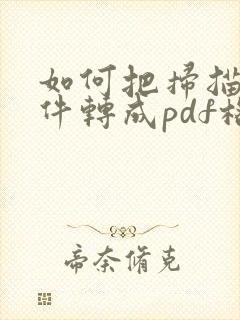 如何把掃描
件轉成pdf
帝奈脩克